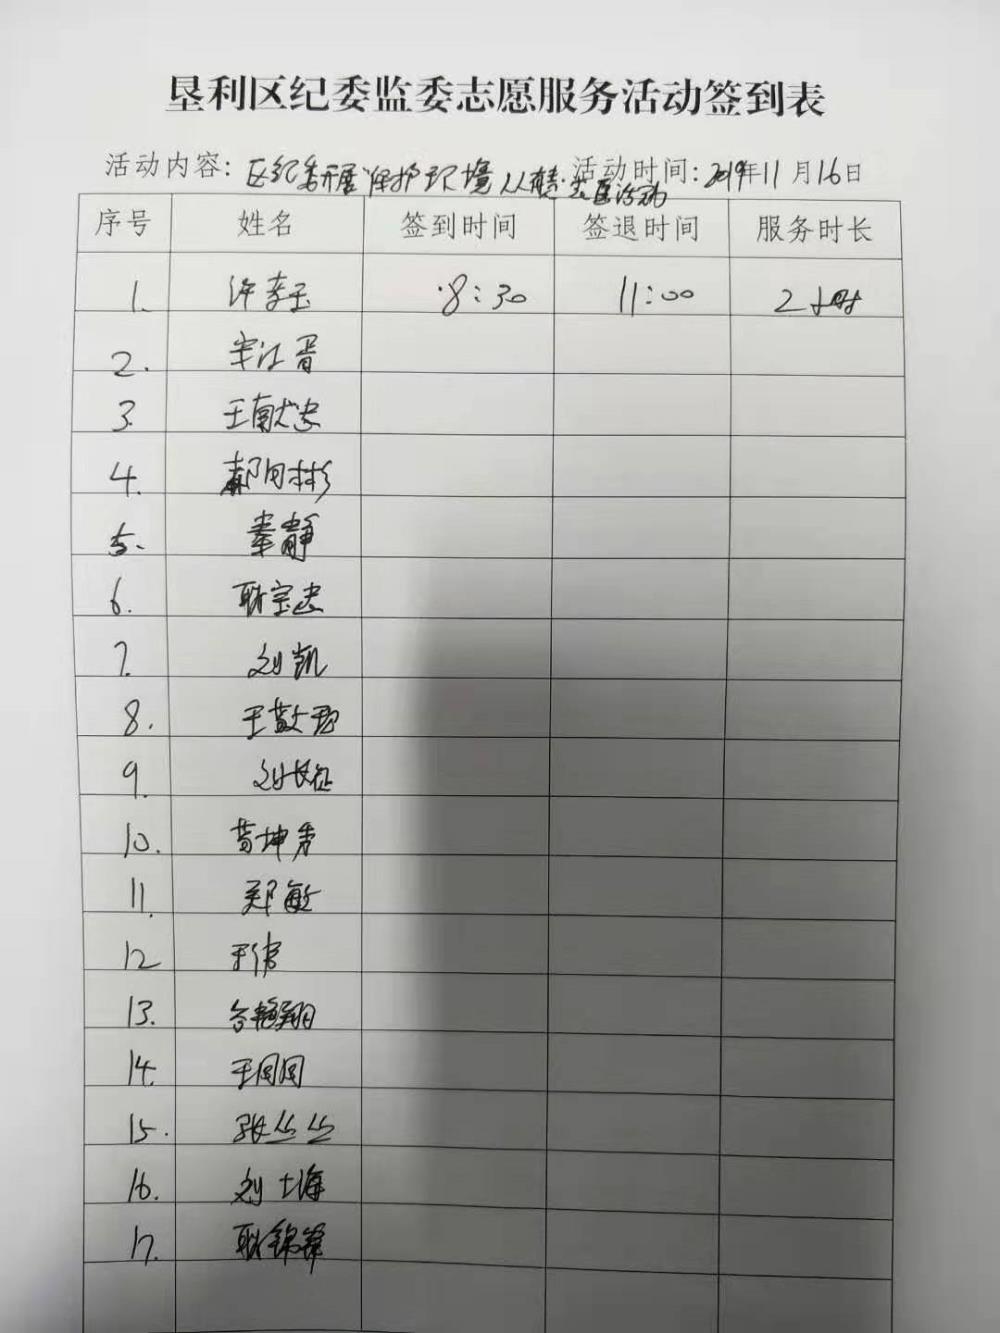 垦利区纪委监委志愿服务活动签到表
活动内容: 区纪委开展"保护环境 从 活动时间: 2019年11月16日
活动
序号 姓名 签到时间 签退时间 服务时长
1. 许孝玉 8:30 11:00 2小时
2. 宋江
3. 王献忠
4. 郝同彬
5. 秦静
6. 耿宝忠
7. 刘凯
8. 王敬
9. 刘长征
10. 苟坤秀
11. 郑敏
12 于伟
13. 翔
14. 王圆圆
15. 张丛丛
16. 刘士海
17. 耿锦锋